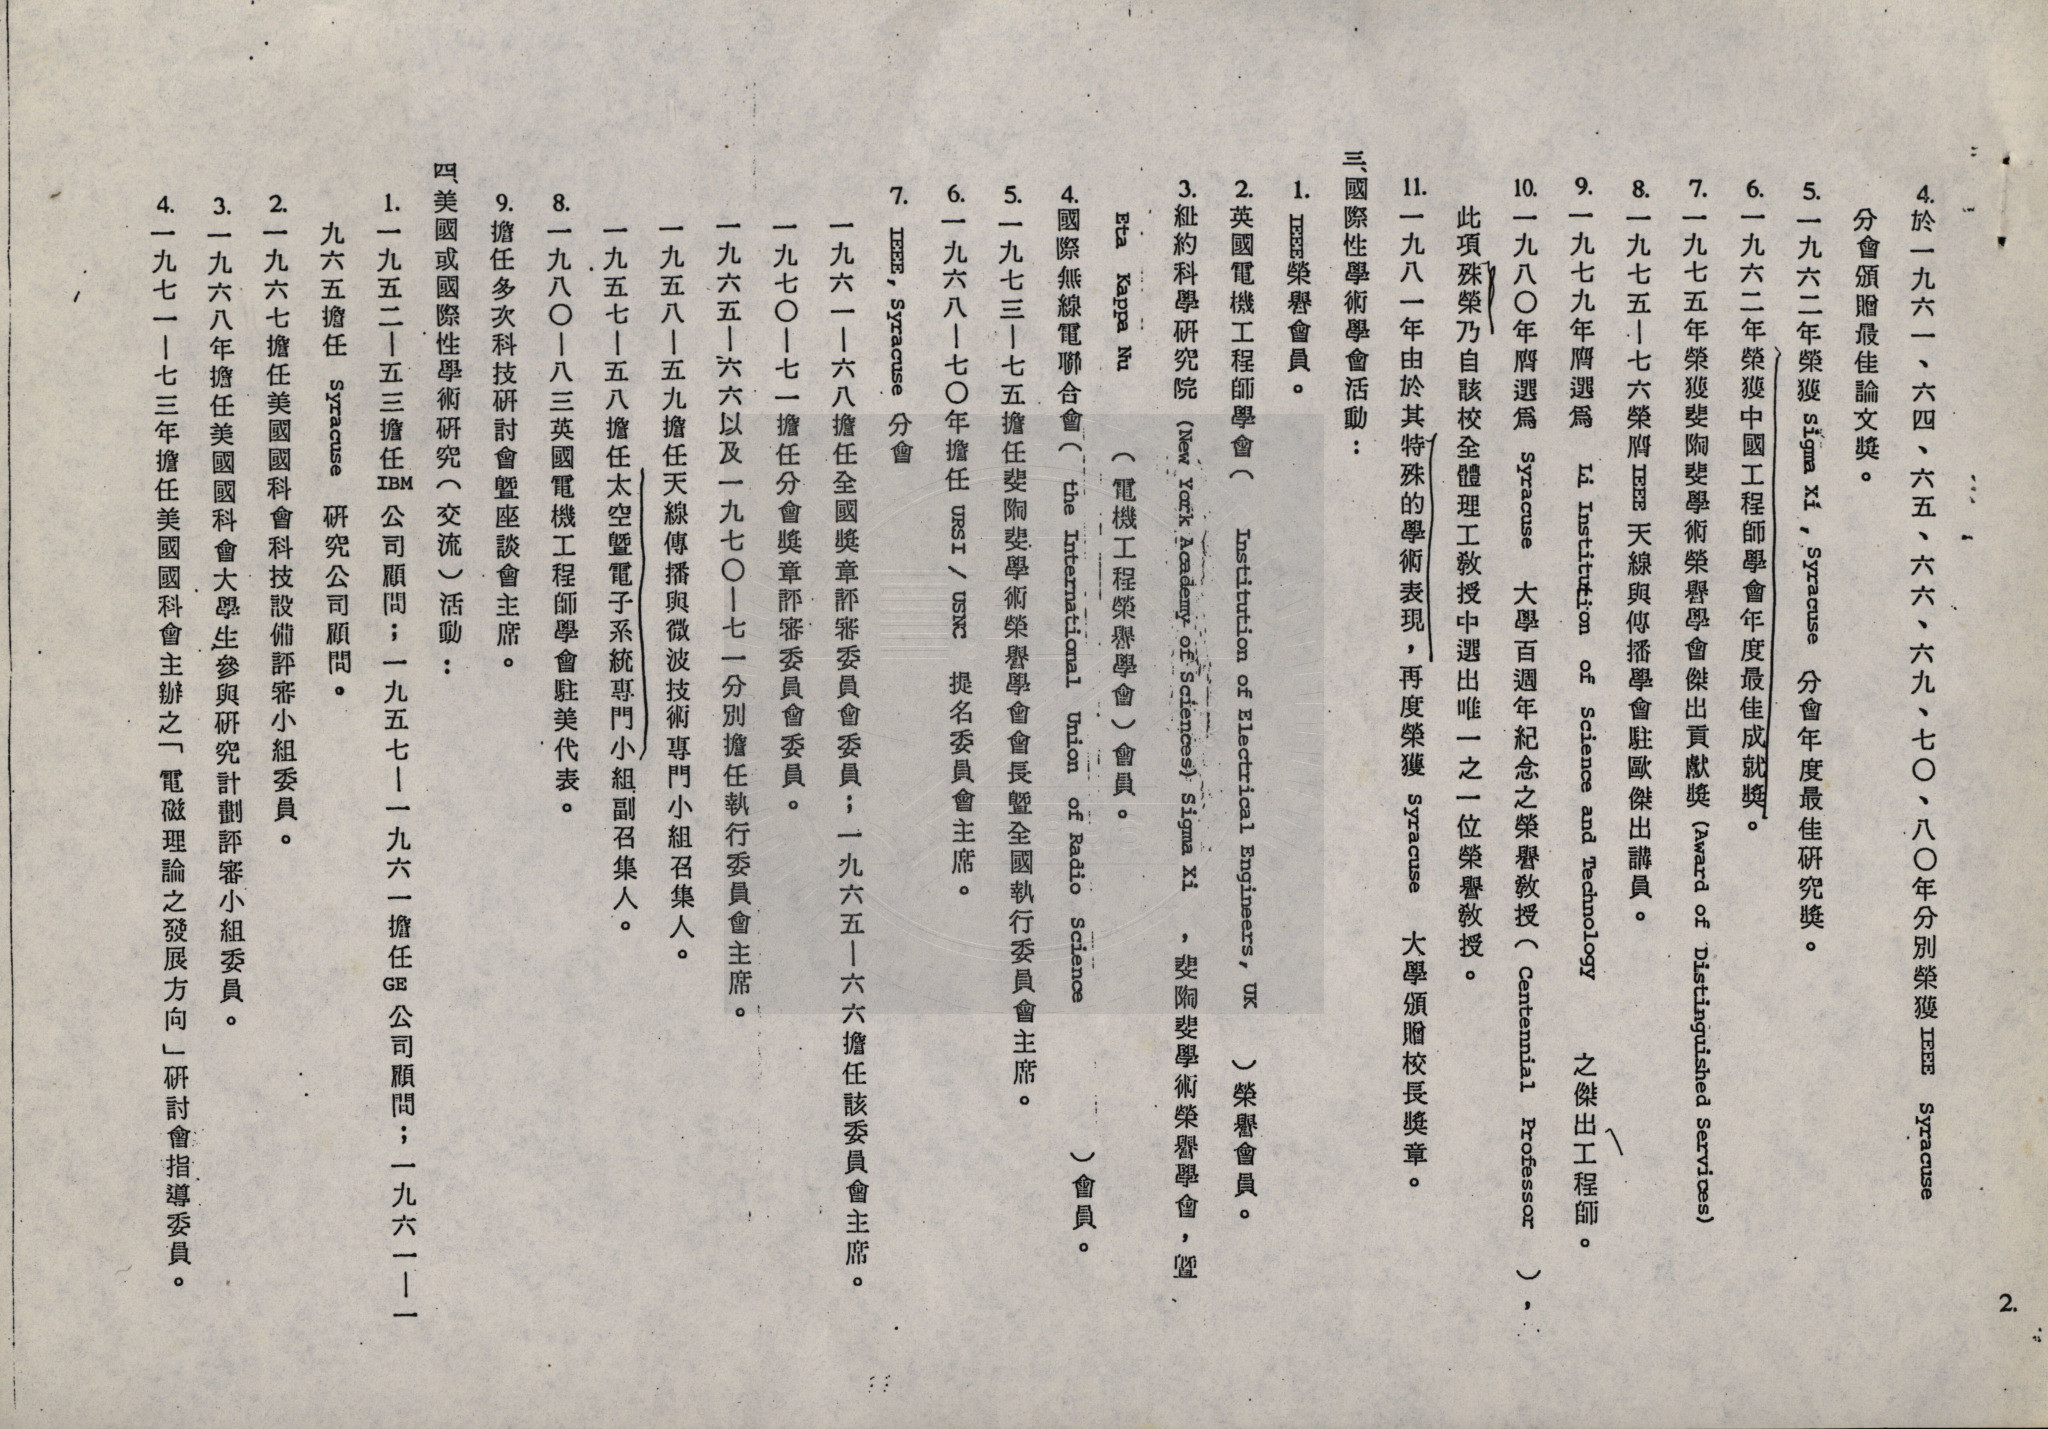 2.
4.於一九六一、六四、六五、六六、六九、七〇、八〇年分別榮獲 IEEE Syracuse
分會頒贈最佳論文獎。
5.一九六二年榮獲 Sigma Xi, Syracuse 分會年度最佳研究獎。
6.一九六二年榮獲中國工程師學會年度最佳成就獎。
7.一九七五年榮獲斐陶斐學術榮譽學會傑出貢獻獎(Award of Distinguished Services)
8.一九七五—七六榮膺IEEE天線與傳播學會駐歐傑出講員。
9.一九七九年膺選爲 Li Institution of Science and Technology 之傑出工程師。
10.一九八〇年膺選爲 Syracuse 大學百週年紀念之榮譽教授(Centennial Professor),
此項殊榮乃自該校全體理工教授中選出唯一之一位榮譽教授。
11.一九八一年由於其特殊的學術表現,再度榮獲 Syracuse 大學頒贈校長獎章。
三、國際性學術學會活動:
1. IEEE榮譽會員。
2.英國電機工程師學會( Institution of Electrical Engineers, UK )榮譽會員。
3.紐約科學研究院 (New York Academy of Sciences) Sigma Xi ,斐陶斐學術榮譽學會,曁
Eta Kappa Nu (電機工程榮譽學會)會員。
4.國際無線電聯合會( the International Union of Radio Science )會員。
5.一九七三—七五擔任斐陶斐學術榮譽學會會長曁全國執行委員會主席。
6.一九六八—七〇年擔任 URSI / USNC 提名委員會主席。
7. IEEE, Syracuse 分會
一九六一—六八擔任全國獎章評審委員會委員;一九六五—六六擔任該委員會主席。
一九七〇—七一擔任分會獎章評審委員會委員。
一九六五—六六以及一九七〇—七一分別擔任執行委員會主席。
一九五八—五九擔任天線傳播與微波技術專門小組召集人。
一九五七—五八擔任太空曁電子系統專門小組副召集人。
8.一九八〇—八三英國電機工程師學會駐美代表。
9.擔任多次科技研討會曁座談會主席。
四、美國或國際性學術研究(交流)活動:
1.一九五二—五三擔任IBM公司顧問;一九五七—一九六一擔任GE公司顧問;一九六一—一
九六五擔任 Syracuse 研究公司顧問。
2.一九六七擔任美國國科會科技設備評審小組委員。
3.一九六八年擔任美國國科會大學生參與研究計劃評審小組委員。
4.一九七一—七三年擔任美國國科會主辦之「電磁理論之發展方向」研討會指導委員。